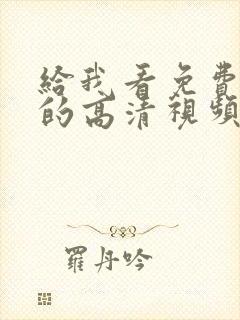 給我看免費
的高清視頻
羅丹吟